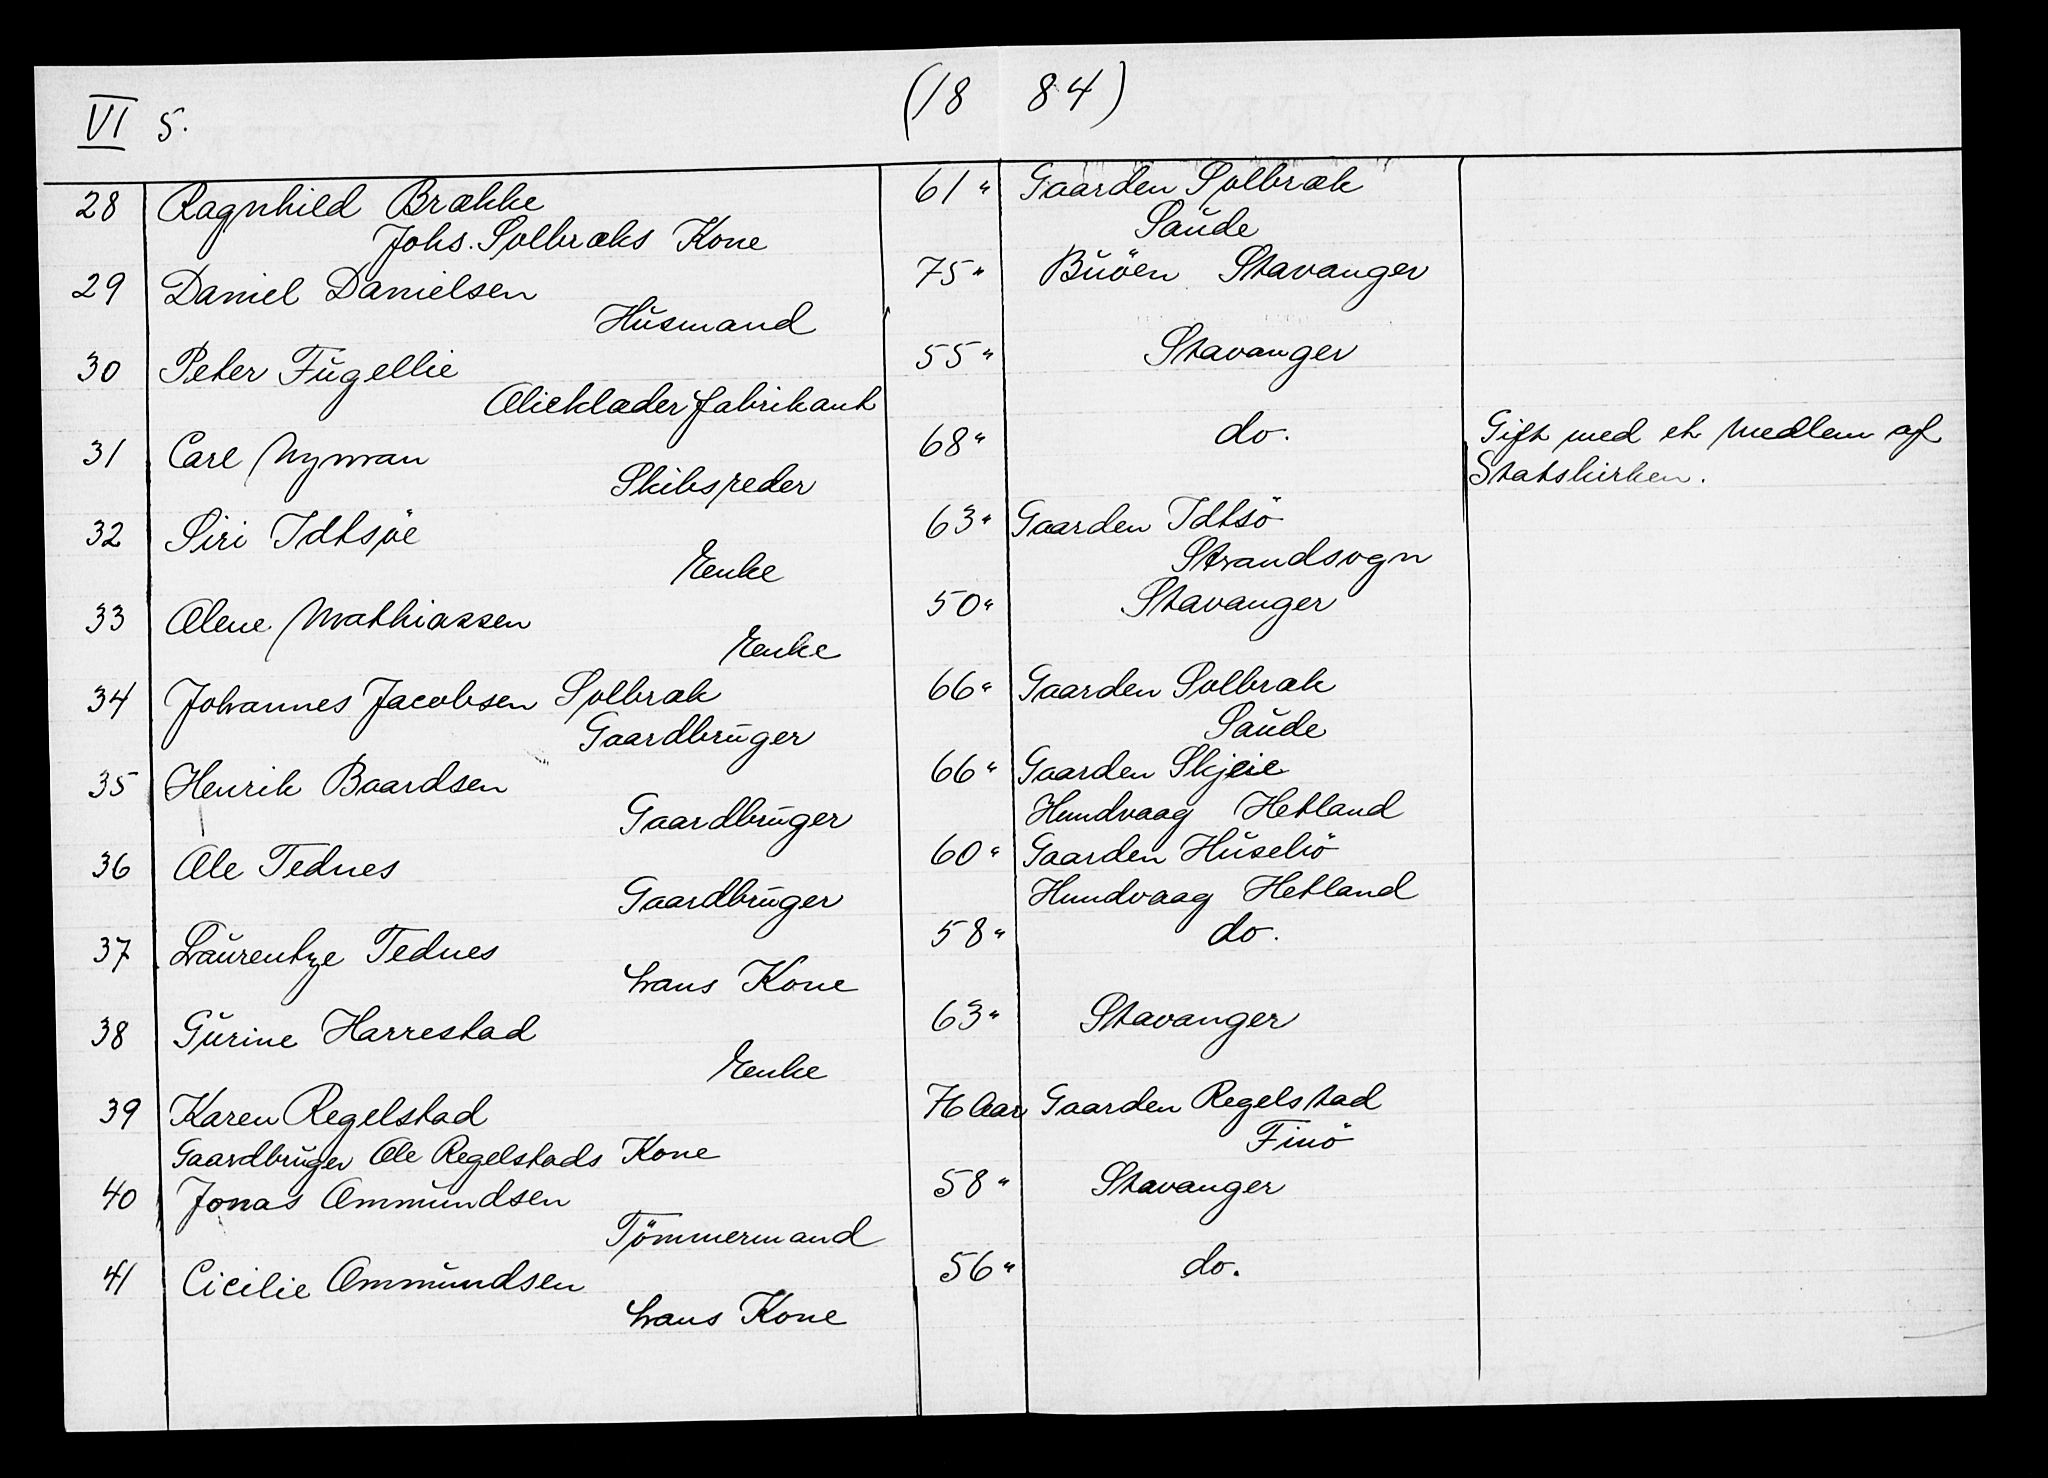 VI 5. (18 84)
28 Ragnhild Brække 61 " Gaarden Solbræk
Johs. Solbræks Kone Saude
29 Daniel Danielsen 75 " Buöen Stavanger
Husmand
30 Peter Fugellie 55 " Stavanger
Olieklæder fabrikant
31 Carl Nyman 68 " do. Gift med et Medlem af
Skibsreder Statskirken.
32 Siri Idtsöe 63 " Gaarden Idtsö
Enke Strandsogn
33 Olene Mathiassen 50 " Stavanger
Enke
34 Johannes Jacobsen Solbræk 66 " Gaarden Solbræk
Gaardbruger Saude
35 Henrik Baardsen 66 " Gaarden Skjeie
Gaardbruger Hundvaag Hetland
36 Ole Tednes 60 " Gaarden Husebö
Gaardbruger Hundvaag Hetland
37 Laurentze Tednes 58 " do.
hans Kone
38 Gurine Harrestad 63 " Stavanger
Enke
39 Karen Regelstad 76 Aar Gaarden Regelstad
Gaardbruger Ole Regelstads Kone Finö
40 Jonas Ommundsen 58 " Stavanger
Tömmermand
41 Cicilie Ommundsen 56 " do.
hans Kone